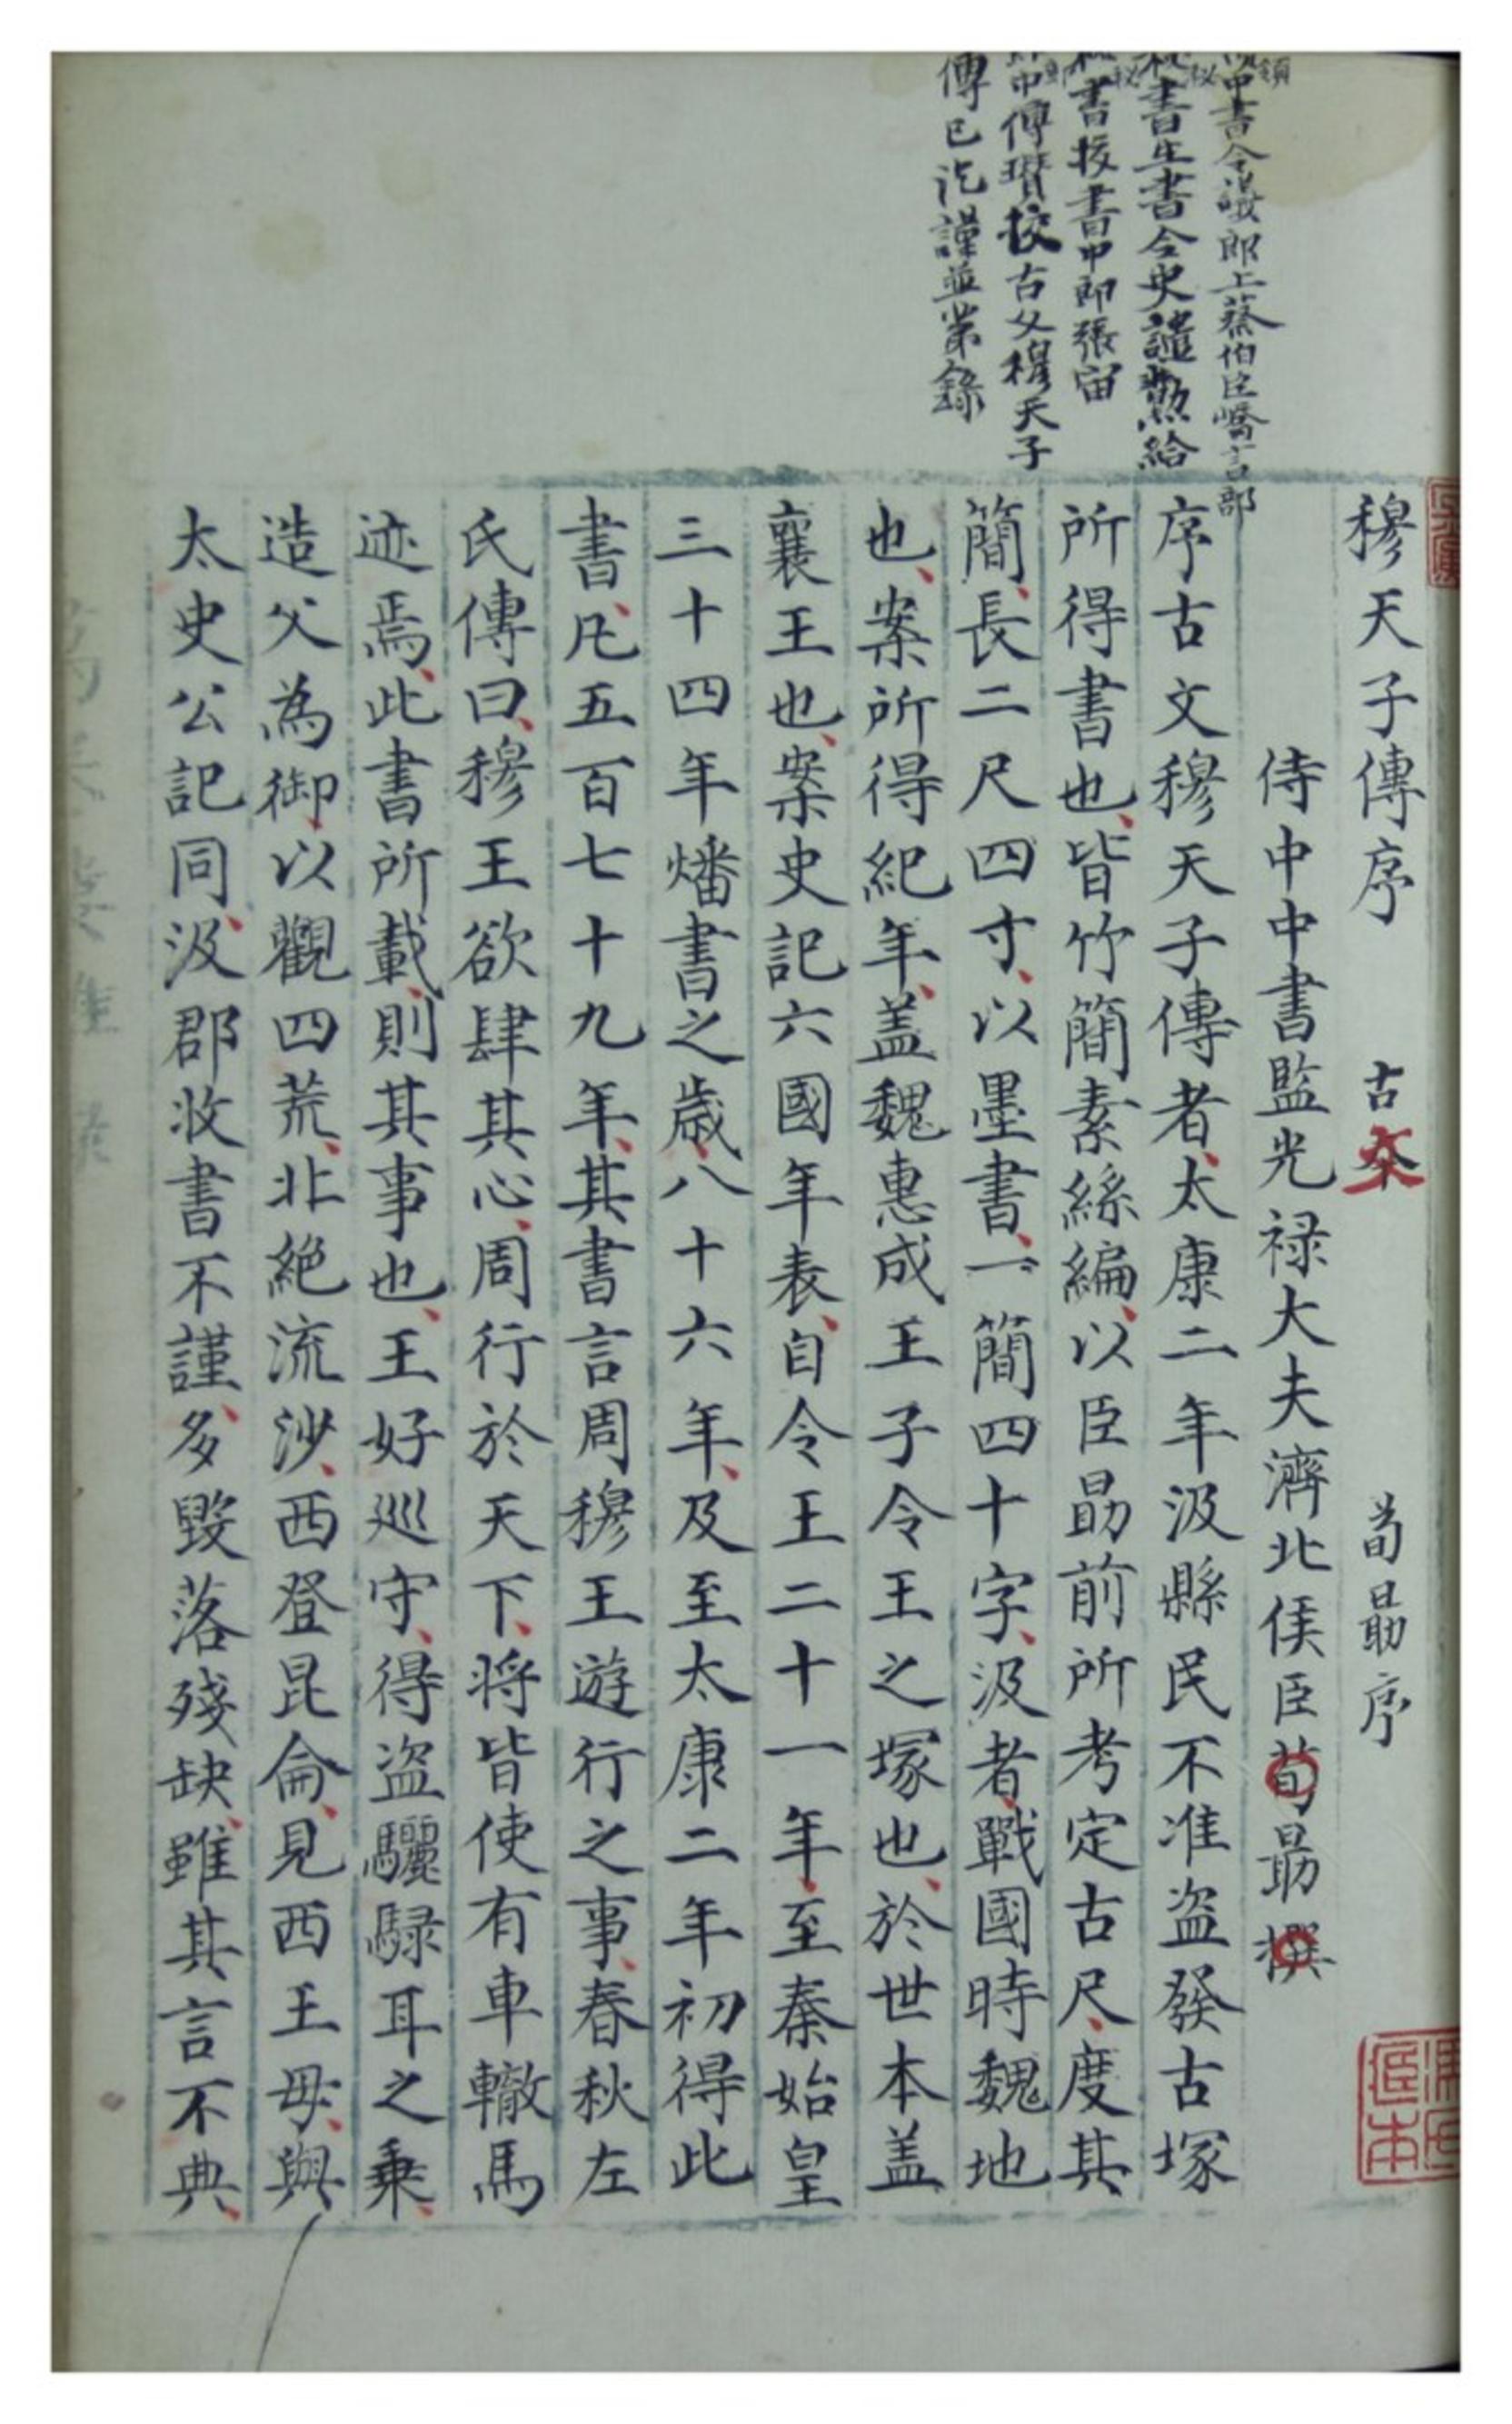 穆天子傳序 古夲 荀勗序
侍中中書監光禄大夫濟北侯臣荀勗撰
序古文穆天子傳者太康二年汲縣民不准盗發古塚
所得書也皆竹簡素絲編以臣勗前所考定古尺度其
簡長二尺四寸以墨書一簡四十字汲者戰國時魏地
也案所得紀年盖魏惠成王子令王之塚也於世本盖
襄王也案史記六國年表自令王二十一年至秦始皇
三十四年燔書之歳八十六年及至太康二年初得此
書凡五百七十九年其書言周穆王遊行之事春秋左
氏傳曰穆王欲肆其心周行於天下将皆使有車轍馬
迹焉此書所載則其事也王好巡守得盗驪騄耳之乗
造父為御以觀四荒北絶流沙西登昆侖見西王母與
太史公記同汲郡收書不謹多毀落殘缺雖其言不典
中書令議郎上蔡伯臣嶠言部
書生書令史譴勲給
書挍書中郎張宙
中傅瓚挍古文穆天子
傳已訖謹並第錄